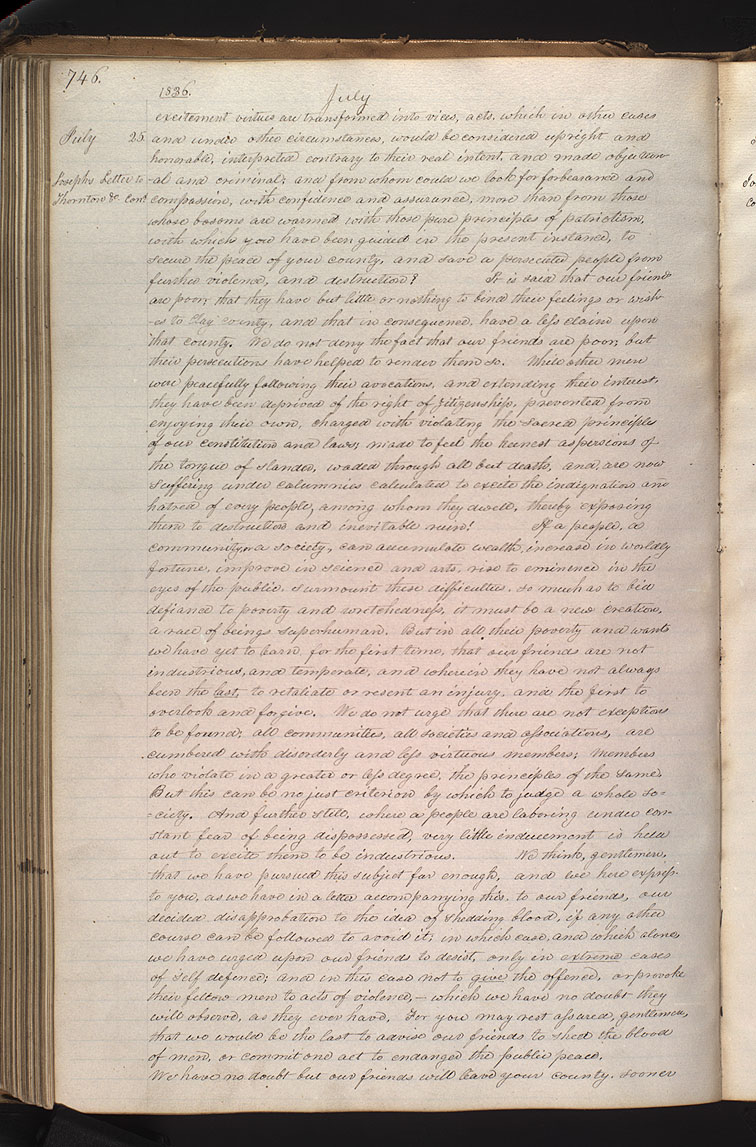 746.
1836.
July
excitement virtues are transformed into vices, acts, which in other cases
July 25
and under other circumstances, would be considered upright and
honorable, interpreted contrary to their real intent, and made objection-
Josephs Letter to
-al and criminal; and from whom could we look for forbearance and
Thornton &c Cont
compassion, with confidence and assurance, more than from those
whose bosoms are warmed with those pure principles of patriotism,
with which you have been guided in the present instance, to
secure the peace of your county, and save a persecuted people from
further violence, and destruction? It is said that our friends
are poor; that they have but little or nothing to bind their feelings or wish-
-es to Clay county, and that in consequence, have a less claim upon
that county. We do not deny the fact that our friends are poor; but
their persecutions have helped to render them so. While other men
were peacefully following their avocations, and extending their interest,
they have been deprived of the right of citizenship, prevented from
enjoying their own, charged with violating the sacred principles
of our constitution and laws; made to feel the keenest aspersions of
the tongue of slander, waded through all but death, and, are now
suffering under calumnies calculated to excite the indignation and
hatred of every people, among whom they dwell, thereby exposing
them to destruction and inevitable ruin! If a people, a
community, or a society, can accumulate wealth, increase in worldly
fortune, improve in science and arts, rise to eminence in the
eyes of the public, surmount these difficulties, so much as to bid
defiance to poverty and wretchedness, it must be a new creation,
a race of beings superhuman. But in all their poverty and wants
we have yet to learn, for the first time, that our friends are not
industrious, and temperate, and wherein they have not always
been the last, to retaliate or resent an injury, and the first to
overlook and forgive. We do not urge that there are not exceptions
to be found; all communities, all societies and associations, are
cumbered with disorderly and less virtuous members; Members
who violate in a greater or less degree, the principles of the same.
But this can be no just criterion by which to judge a whole so=
=ciety. And further still, where a people are laboring under con-
stant fear of being dispossessed, very little inducement is held
out to excite them to be industrious. We think, gentlemen,
that we have pursued this subject far enough, and we here express
to you, as we have in a letter accompanying this, to our friends, our
decided disapprobation to the idea of shedding blood, if any other
course can be followed to avoid it; in which case, and which alone,
we have urged upon our friends to desist, only in extreme cases
of self defence; and in this case not to give the offence, or provoke
their fellow men to acts of violence,— which we have no doubt they
will observe, as they ever have. For you may rest assured, gentlemen,
that we would be the last to advise our friends to shed the blood
of men, or commit one act to endanger the public peace.
We have no doubt but our friends will leave your county, sooner